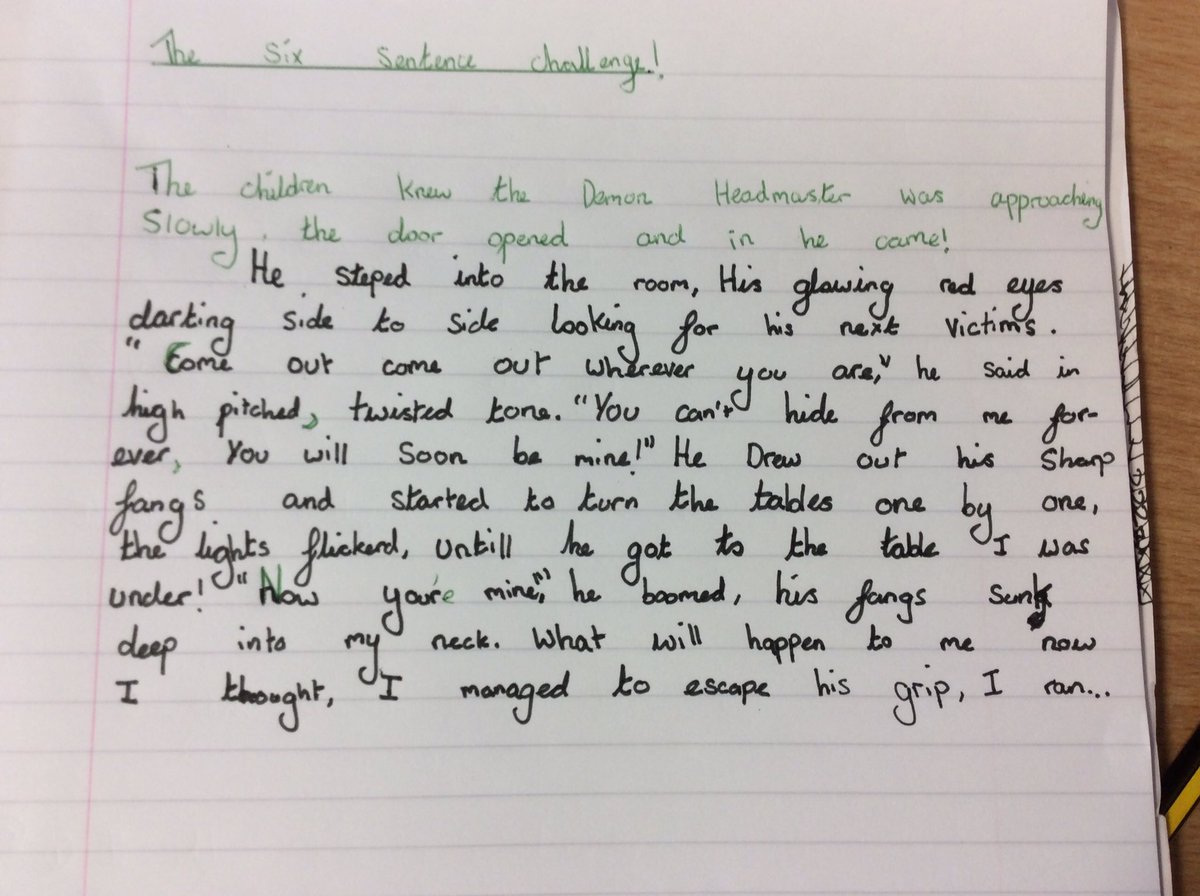 The Six Sentence challenge!
The children knew the Demon Headmaster was approaching
Slowly. the door opened and in he came!
He steped into the room, His glowing red eyes
darting side to side looking for his next victims.
"Come out come out wherever you are," he said in
high pitched, twisted tone. "You can't hide from me for-
ever, You will Soon be mine!" He Drew out his Sharp
fangs and started to turn the tables one by one,
the lights flickerd, untill he got to the table I was
under! "Now you're mine," he boomed, his fangs sunk
deep into my neck. What will happen to me now
I thought, I managed to escape his grip, I ran...